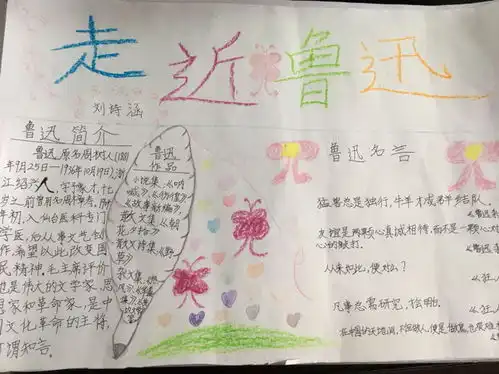 走近鲁迅
刘诗涵
鲁迅简介
鲁迅原名周树人(1881
年9月25日—1936年10月19日)浙
江绍兴人,字豫才,
岁之前曾用名周樟寿,
年初,入仙台医科专门
学医,后从事文艺创
作,希望以此改变国
民精神,毛主席评价
他是伟大的文学家、思
想家和革命家,是中
国文化革命的主将,
谓知言。
鲁迅
作品
小说集《呐
喊》《彷徨》
《故事新编》
散文集《朝
花夕拾》
散文诗集《野
草》
杂文集
鲁迅名言
猛兽总是独行,牛羊才成群结队。
《鲁迅
友谊是两颗心真诚相待,而不是一颗心对
心的敲打。
《鲁迅
从来如此,便对么?
《狂
凡事总需研究,
《狂人